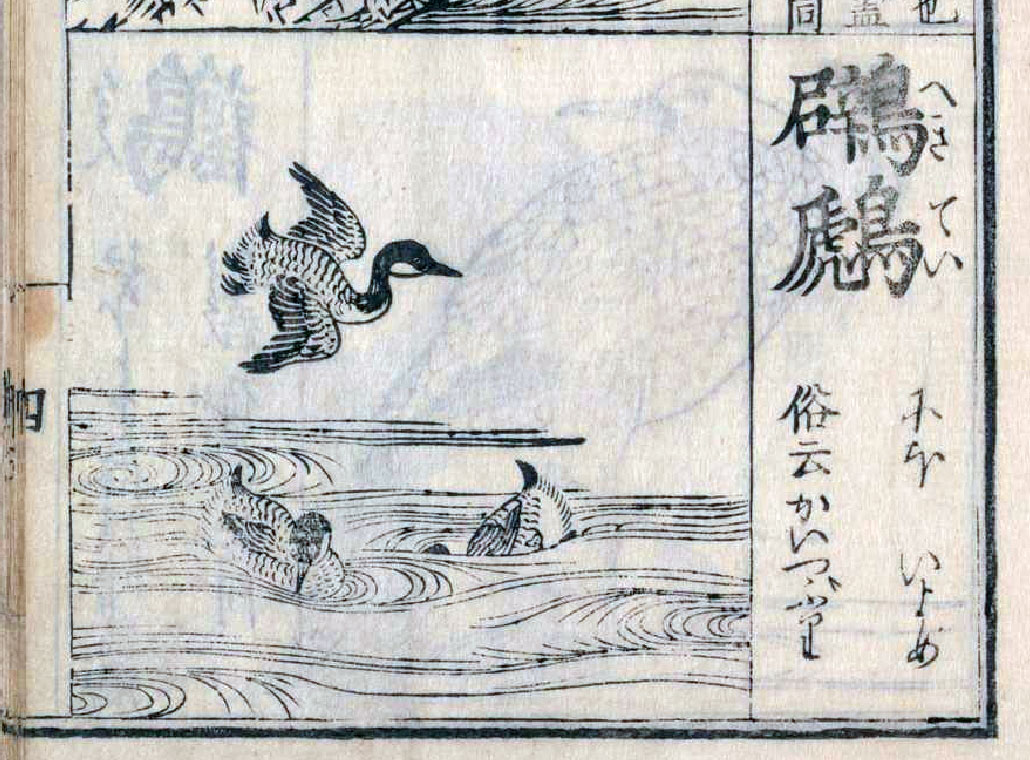 也
同
へきてい
鸊鷉
にほ いよめ
俗云かいつぶり
四